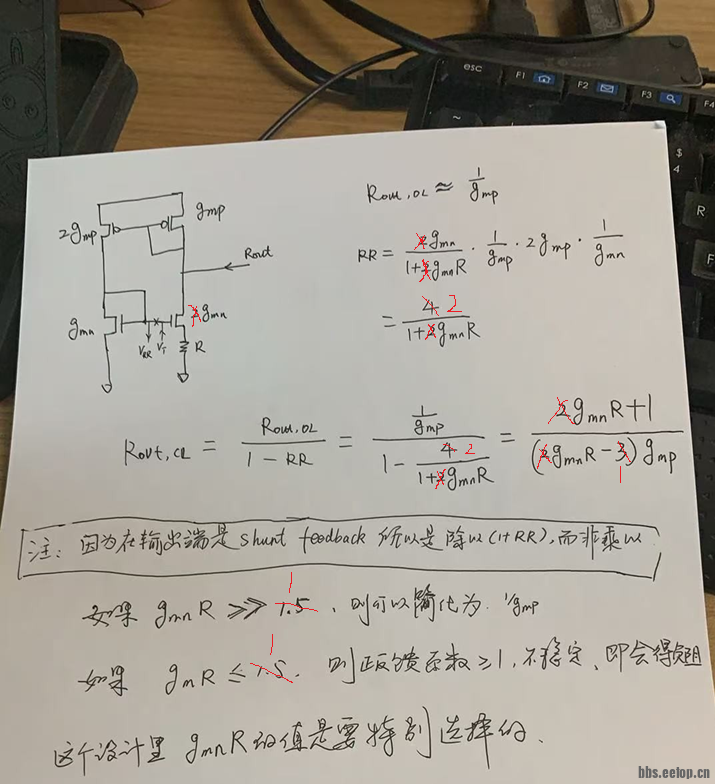 esc
F1
F2
F3
F4
~
$
4
R
F
2gmp
gmp
Rout
gmn
gmn
VRR
VT
R
Rout,OL ≈ 1/gmp
RR = gmn/(1+gmnR) · 1/gmp · 2gmp · 1/gmn
= 2/(1+gmnR)
Rout,CL = Rout,OL/(1-RR) = (1/gmp)/(1-2/(1+gmnR)) = (gmnR+1)/((gmnR-1)gmp)
注: 因为在输出端是 shunt feedback 所以是除以(1+RR), 而非乘以
如果 gmnR >>> 1, 则可以简化为 1/gmp
如果 gmR ≤ 1. 则正反馈系数 ≥1, 不稳定、即会得负阻
这个设计里 gmnR的值是要特别选择的.
bbs.eetop.cn